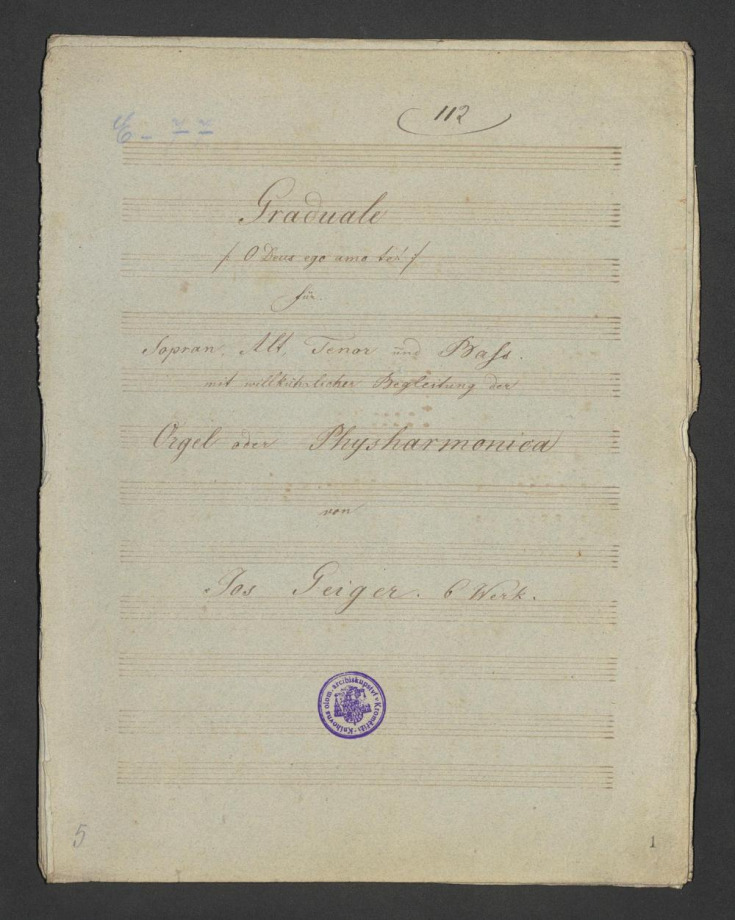 112
Graduale
/: O Deus ego amo te! :/
für
Sopran, Alt, Tenor und Bass.
mit willkührlicher Begleitung der
Orgel oder Physharmonica
von
Jos Geiger. 6 Werk.
Knihovna olom. arcibiskupství v Kroměříži
5
1